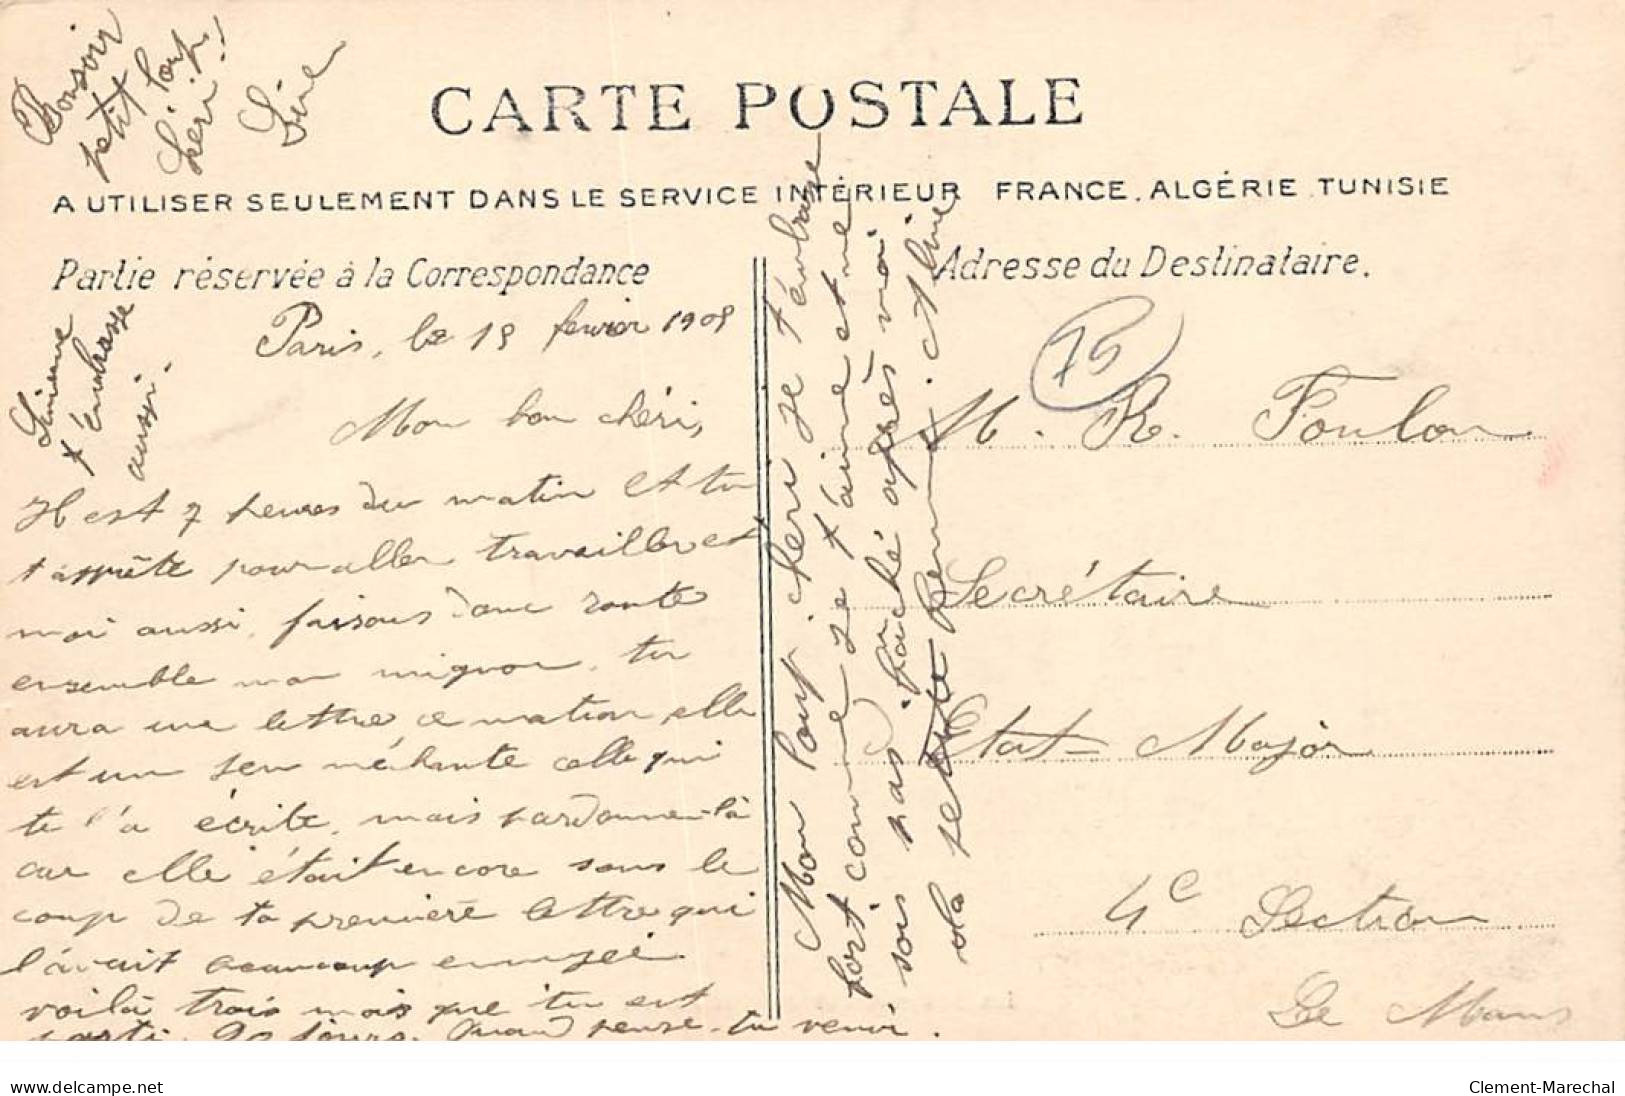 Bonsoir
petit loup
chéri !!
Line
CARTE POSTALE
A UTILISER SEULEMENT DANS LE SERVICE INTÉRIEUR FRANCE. ALGÉRIE. TUNISIE
Partie réservée à la Correspondance
Adresse du Destinataire.
t'embrasse
aussi.
Paris, le 15 fevrier 1909
Mon bon chéri,
Il est 7 heures du matin et tu
t'apprête pour aller travailler et
moi aussi, faisons donc route
ensemble mon mignon, tu
aura une lettre ce matin elle
est un peu méchante celle qui
te l'a écrite, mais pardonne-là
car elle était encore sous le
coup de ta première lettre qui
l'avait beaucoup ennuyée.
voilà trois mois que tu est
parti. 90 jours. Quand pense-tu venir.
Mon loup chéri je t'embrasse
fort comme je t'aime et ne
sois pas fâché après moi
ta petite femme. et Line
75
M. R. Foulon
Secrétaire
Etat-Major
4e Section
Le Mans
www.delcampe.net
Clement-Marechal